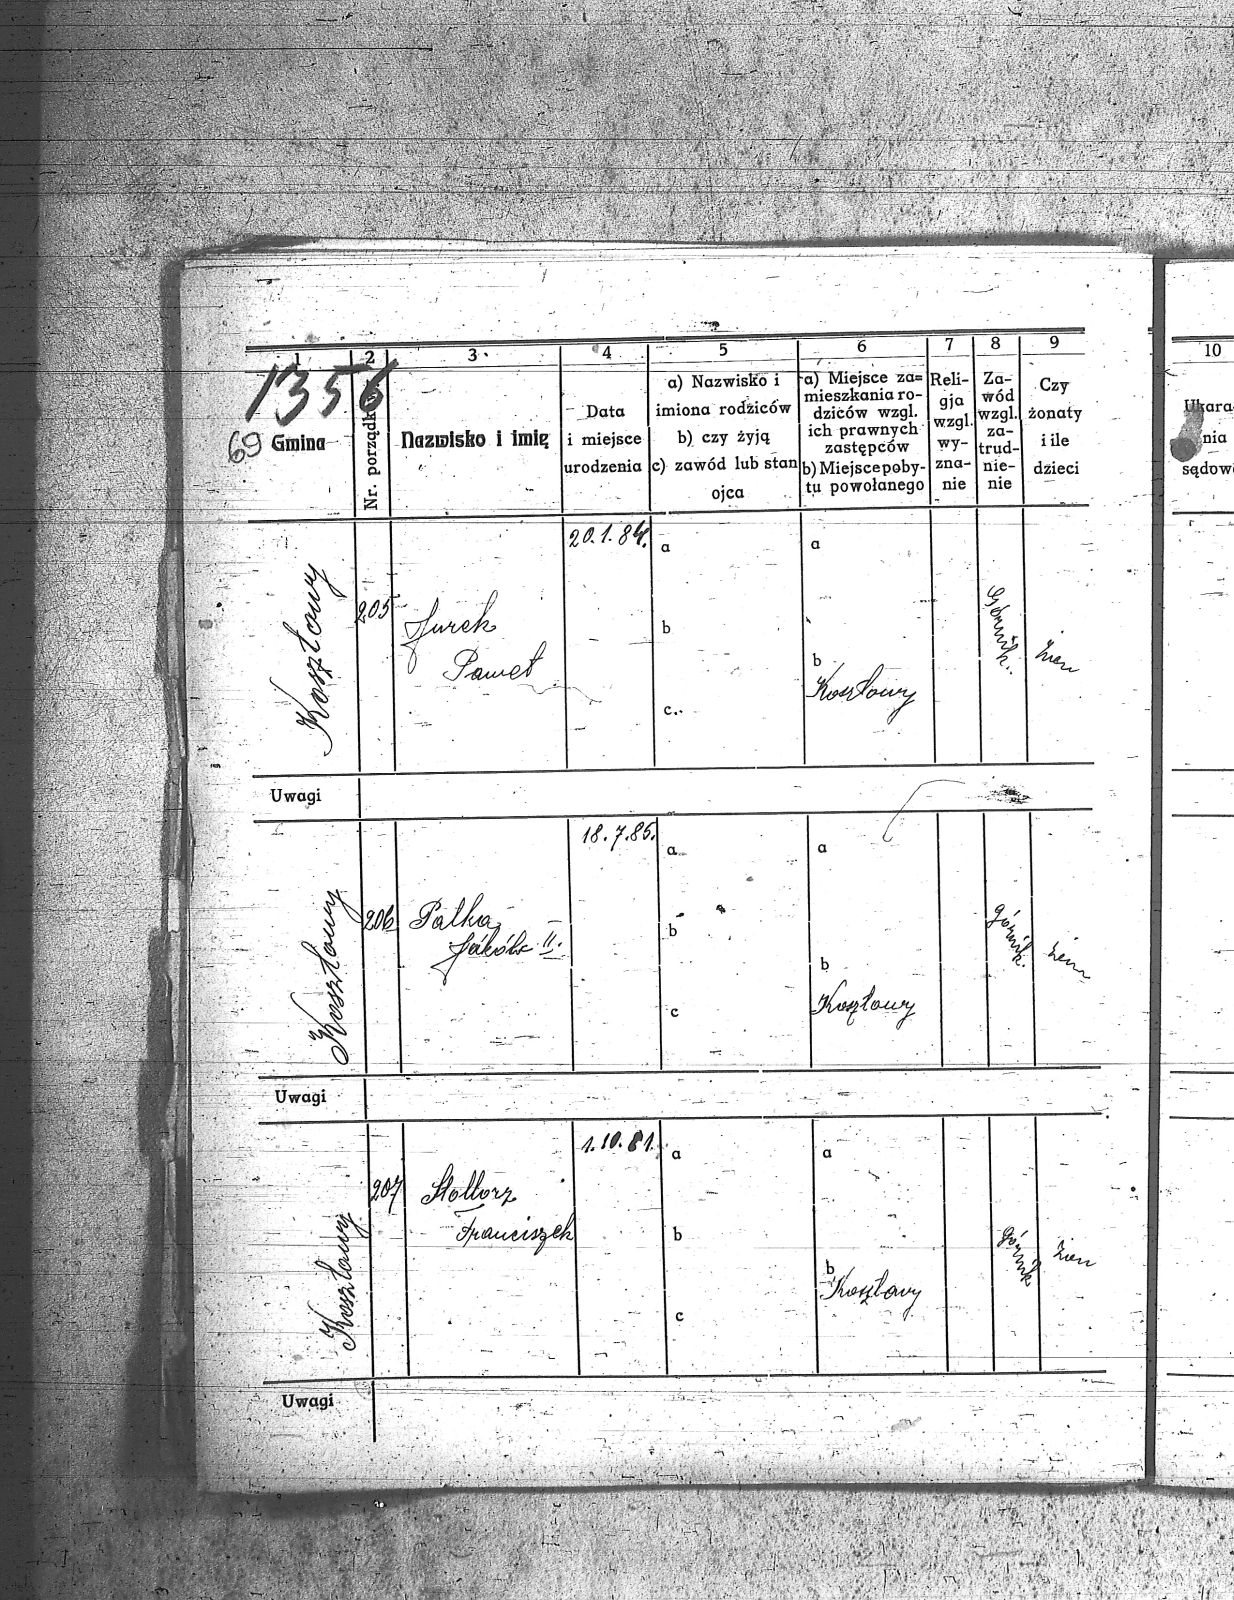 1 2 3 4 5 6 7 8 9 10
1356
69
Gmina
Nr. porządk.
Nazwisko i imię
Data
i miejsce
urodzenia
a) Nazwisko i
imiona rodziców
b) czy żyją
c) zawód lub stan
ojca
a) Miejsce za=
mieszkania ro-
dziców wzgl.
ich prawnych
zastępców
b) Miejsce poby-
tu powołanego
Reli-
gja
wzgl.
wy-
zna-
nie
Za-
wód
wzgl.
za-
trud-
nie-
nie
Czy
żonaty
i ile
dzieci
Ukara
nia
sądow
Kosztowy
205
Jurek
Paweł
20.1.84.
a
b
c.
a
b
Kosztowy
Górnik.
żon
Uwagi
Kosztowy
206
Palka
Jakób II.
18.7.85.
a
b
c
a
b
Kosztowy
górnik.
żon
Uwagi
Kosztowy
207
Stollorz
Franciszek
1.10.81.
a
b
c
a
b
Kosztowy
górnik
żon
Uwagi